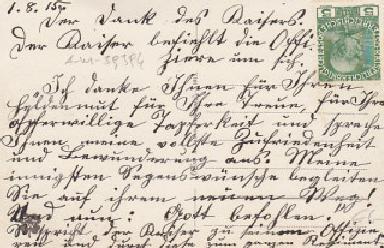 1. 8. 15.
Der Dank des Kaisers.
Der Kaiser befiehlt die Offi-
ziere um sich.
Ich danke Ihnen für Ihren
Heldenmut für Ihre Treue, für Ihre
opferwillige Tapferkeit und spreche
Ihnen meine vollste Zufriedenheit
und Bewunderung aus. Meine
innigsten Segenswünsche begleiten
Sie auf ihrem neuen Weg!
Und nun: Gott befohlen!"
So spricht der Kaiser zu seinen Offizie-
ren und